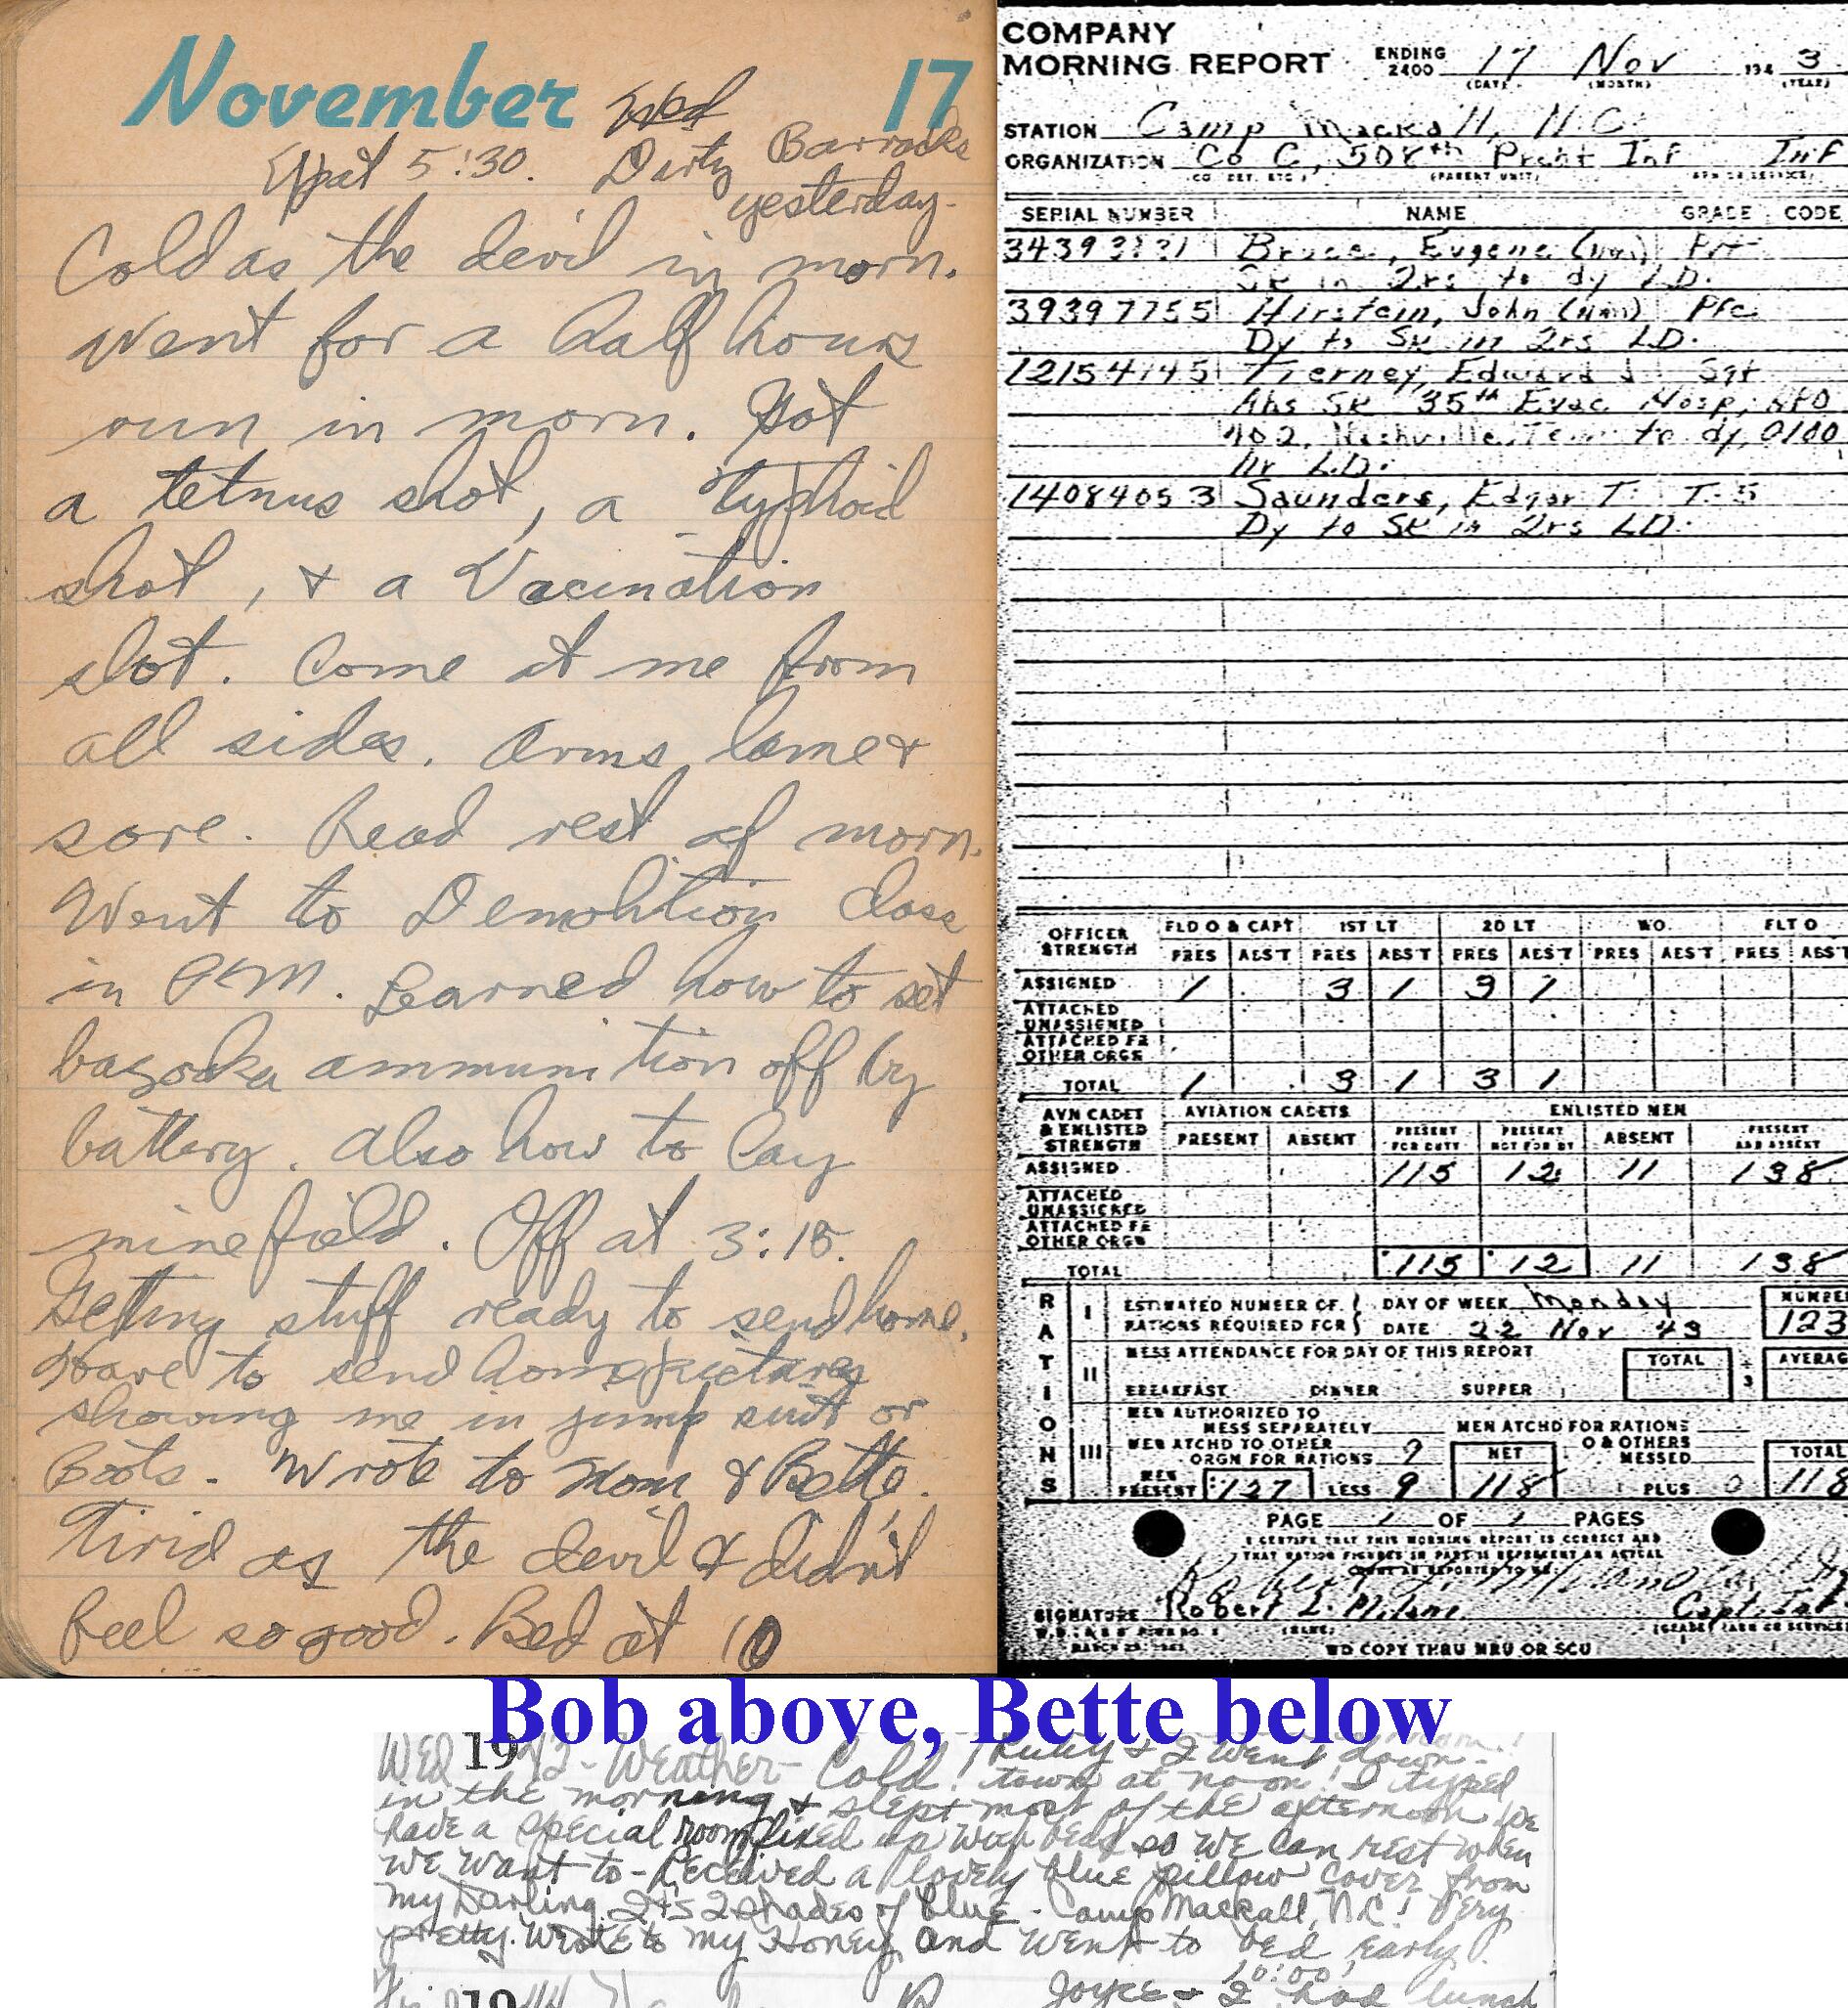 November Wed 17
Up at 5:30. Dirty Barracks
yesterday.
Cold as the devil in morn.
Went for a half hours
run in morn. Got
a tetnus shot, a typhoid
shot, & a Vacination
shot. Come at me from
all sides. Arms lame &
sore. Read rest of morn.
Went to Demolition class
in P.M. Learned how to set
bazooka ammunition off by
battery. Also how to lay
mine field. Off at 3:15.
Getting stuff ready to send home.
Have to send home pictures
showing me in jump suit or
Boots. Wrote to Mom & Bette.
Tirid as the devil & didn't
feel so good. Bed at 10
COMPANY
MORNING REPORT ENDING 2400 17 Nov 194 3
(DATE) (MONTH) (YEAR)
STATION Camp Mackall, N.C.
ORGANIZATION Co C, 508th Prcht Inf Inf
(CO. DET. ETC.) (PARENT UNIT) (ARM OR SERVICE)
SERIAL NUMBER NAME GRADE CODE
Eugene (nmi) Pvt
Sk in 2rs to dy LD.
39397755 Hirstein, John (nmi) Pfc
Dy to Sk in 2rs LD.
12154145 Tierney, Edward J Sgt
Abs Sk 35th Evac Hosp, APO
402, Nashville, Tenn to dy 0100
Hr L.D.
14084053 Saunders, Edgar T. T-5
Dy to Sk in 2rs LD.
OFFICER STRENGTH FLD O & CAPT 1ST LT 2D LT WO FLT O
PRES ABS'T PRES ABS'T PRES ABS'T PRES ABS'T PRES ABS'T
ASSIGNED 1 3 1 3 1
ATTACHED UNASSIGNED
ATTACHED FR OTHER ORGS
TOTAL 1 3 1 3 1
AVN CADET & ENLISTED STRENGTH AVIATION CADETS ENLISTED MEN
PRESENT ABSENT PRESENT FOR DUTY PRESENT NOT FOR DY ABSENT PRESENT AND ABSENT
ASSIGNED 115 12 11 138
ATTACHED UNASSIGNED
ATTACHED FR OTHER ORGN
TOTAL 115 12 11 138
RATIONS
I ESTIMATED NUMBER OF RATIONS REQUIRED FOR DAY OF WEEK Monday NUMBE
DATE 22 Nov 43 123
II MESS ATTENDANCE FOR DAY OF THIS REPORT TOTAL ÷ 3 AVERAG
BREAKFAST DINNER SUPPER
III MEN AUTHORIZED TO MESS SEPARATELY MEN ATCHD FOR RATIONS
MEN ATCHD TO OTHER ORGN FOR RATIONS 9 NET O & OTHERS MESSED TOTAL
MEN PRESENT 127 LESS 9 118 PLUS 0 118
PAGE 1 OF 1 PAGES
I CERTIFY THAT THIS MORNING REPORT IS CORRECT AND
THAT RATION FIGURES IN PART III REPRESENT AN ACTUAL
COUNT AS REPORTED TO ME.
SIGNATURE Robert L. Milam Capt. Inf
WD COPY THRU MRU OR SCU
Bob above, Bette below
Wed 1942 - Weather - Cold! Ruby & I went down
town at noon! I typed
in the morning & slept most of the afternoon. We
have a special room fixed up with beds so we can rest when
we want to - Received a lovely blue pillow cover from
my Darling. It's 2 shades of blue - Camp Mackall, N.C! Very
pretty. Wrote to my Honey and went to bed early!
10:00!
19 Joyce & I had lunch